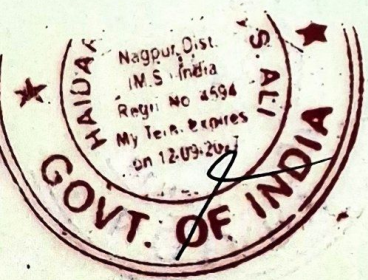 HAIDAR S. ALI
Nagpur Dist.
M.S. India
Regn No 4594
My Term expires
on 12-09-20
GOVT. OF INDIA